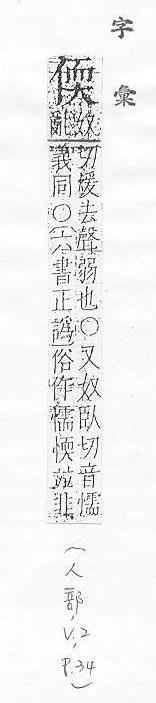 字彙
偄
奴亂
切煖去聲弱也○又奴臥切音懦
義同○六書正譌俗作懦愞竝非
(人部, V.2, P.34)